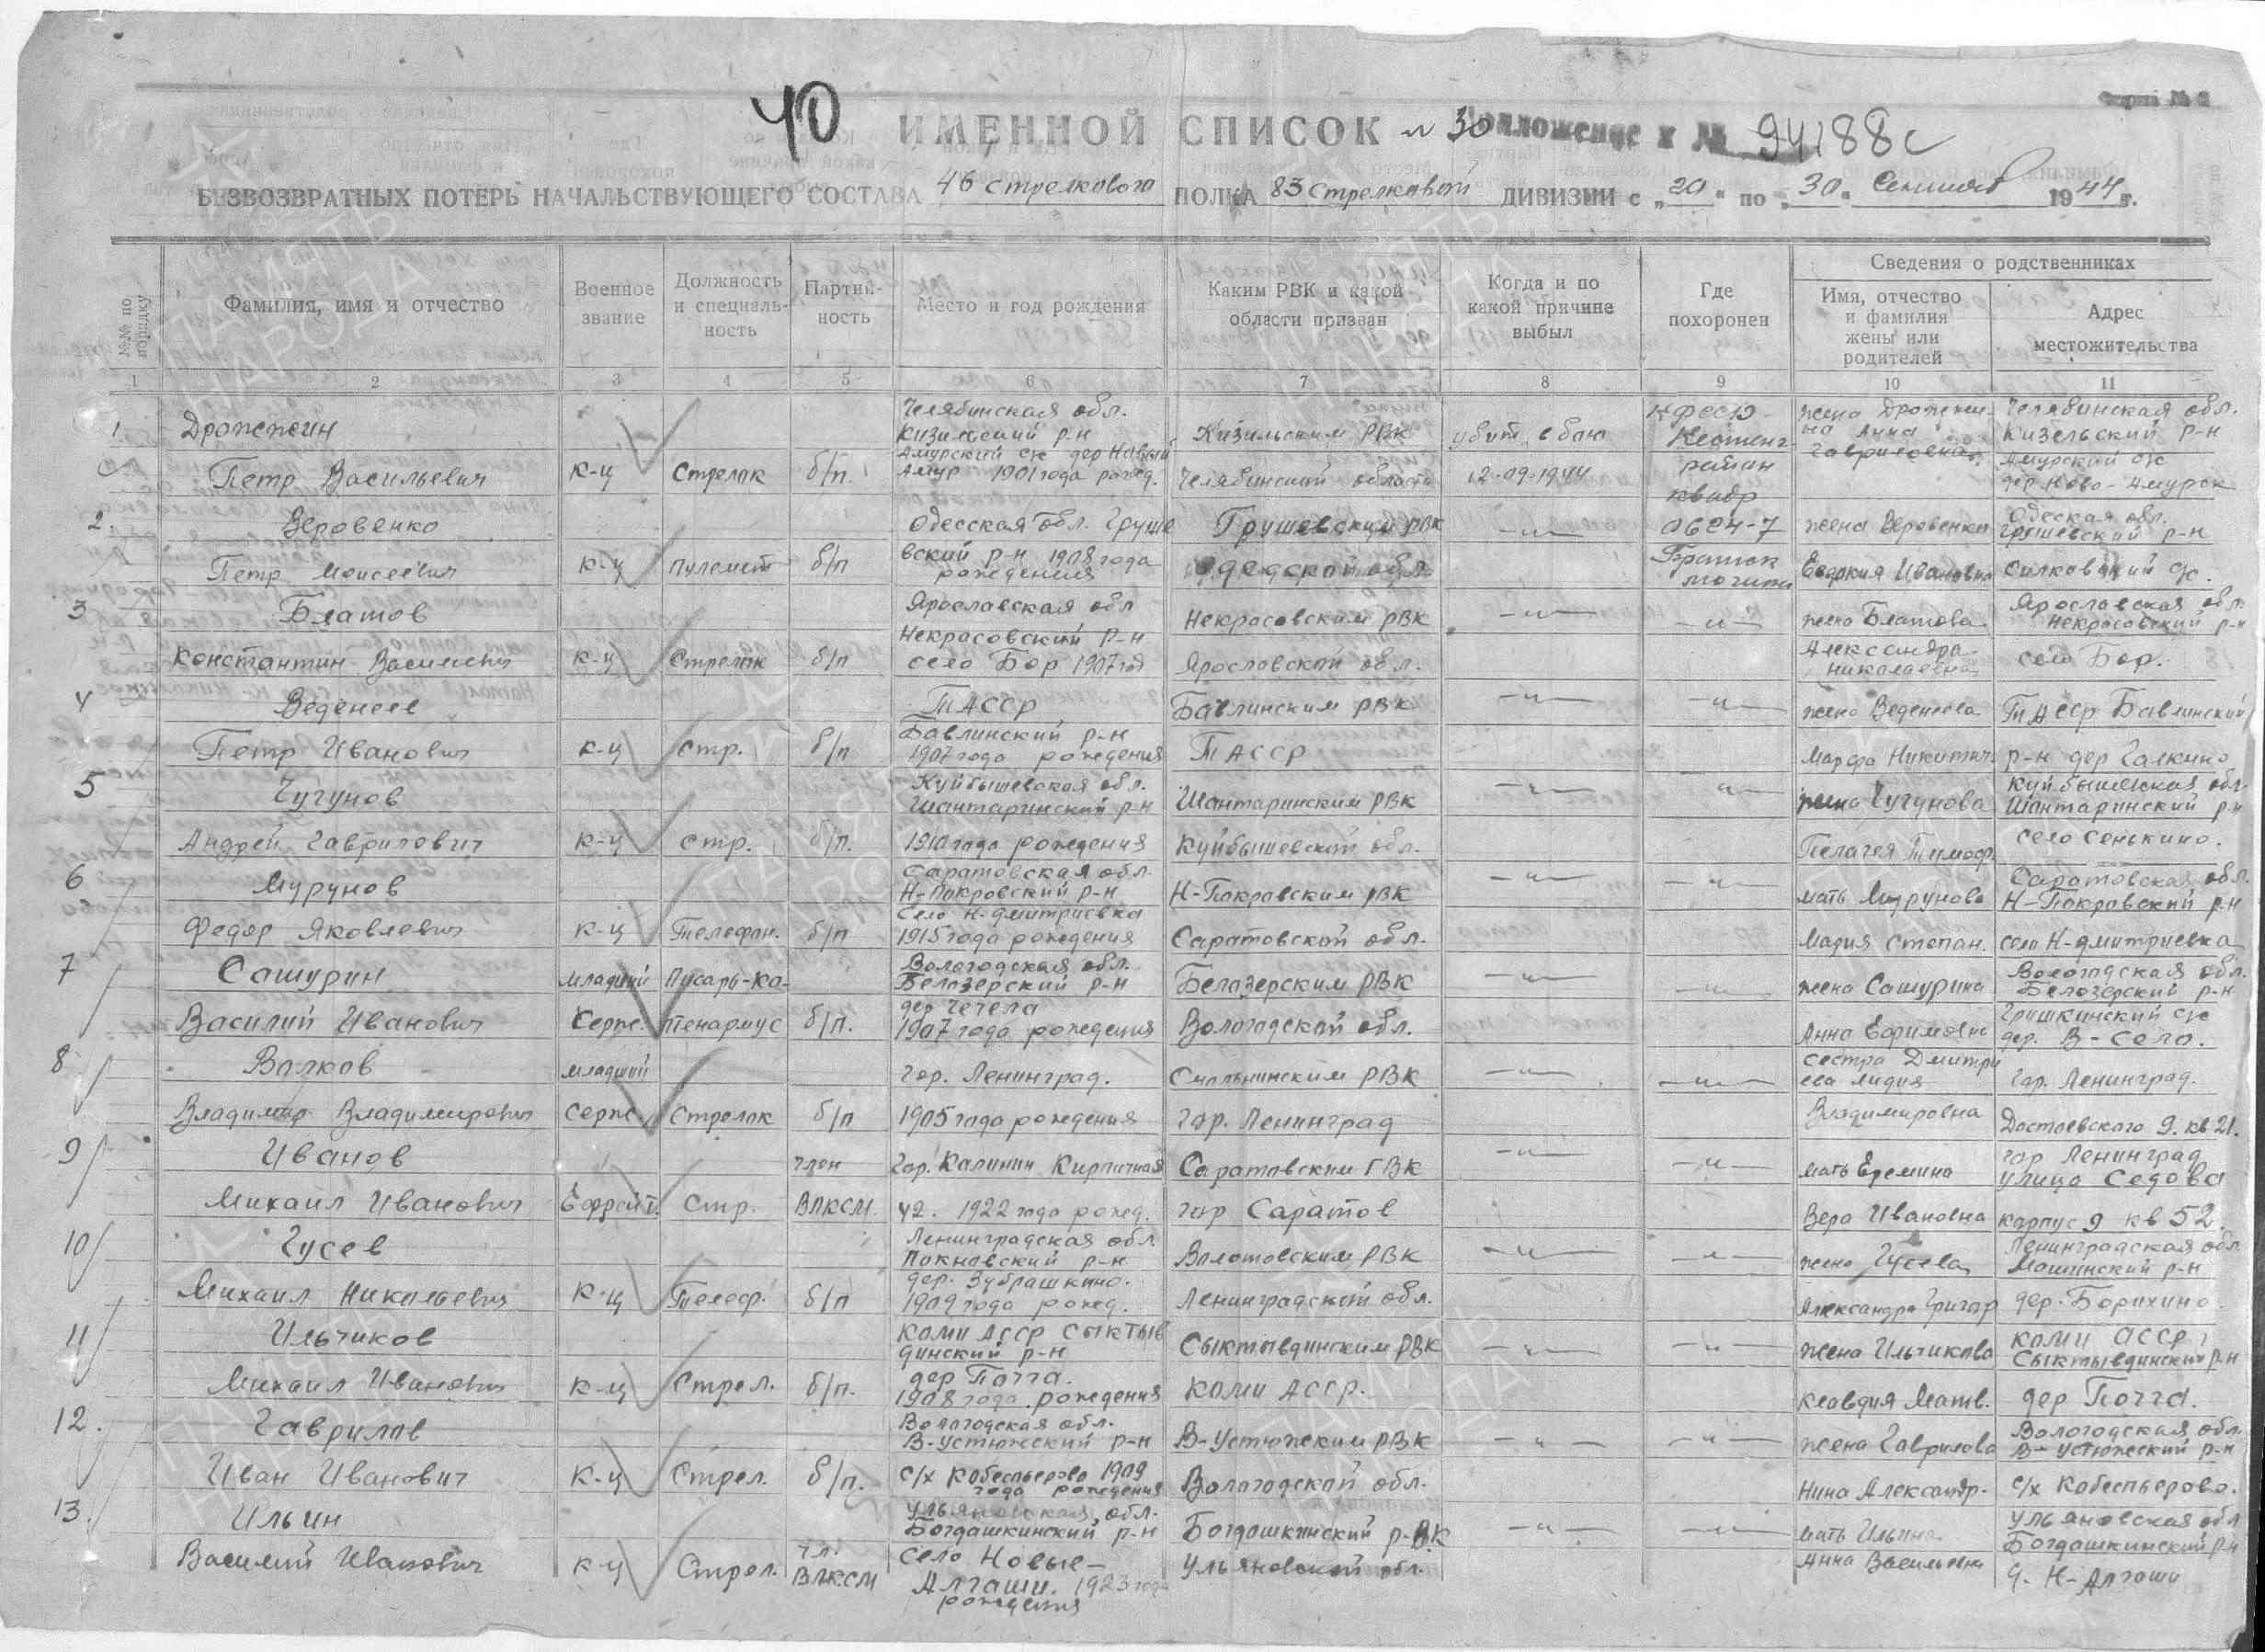 Форма № 2
40 ИМЕННОЙ СПИСОК № 30 Приложение к № 94188с
БЕЗВОЗВРАТНЫХ ПОТЕРЬ НАЧАЛЬСТВУЮЩЕГО СОСТАВА 46 стрелкового ПОЛКА 83 стрелковой ДИВИЗИИ с „20“ по „30“ Сентября 1944 г.
№№ по порядку Фамилия, имя и отчество Военное звание Должность и специальность Партийность Место и год рождения Каким РВК и какой области призван Когда и по какой причине выбыл Где похоронен Сведения о родственниках
Имя, отчество и фамилия жены или родителей Адрес местожительства
1 2 3 4 5 6 7 8 9 10 11
1. Дрожжин Челябинская обл. Кизильский р-н Кизильским РВК убит в бою КФССР Кестенг. жена Дрожжина Анна Гавриловна Челябинская обл. Кизельский р-н
Петр Васильевич к-ц Стрелок б/п. Амурский с/с дер Новый Амур 1901 года рожд. Челябинской области 12-09-1944 район квадр Амурский с/с дер Ново-Амурск
2. Веровенко Одесская обл. Груше Грушевским РВК —"— 0624-7 жена Веровенко Одеская обл. Грушевский р-н
Петр Моисеевич к-ц пулемет б/п вский р-н 1908 года рождения Одесской обл. Братск могила Евдокия Ивановна Силковский с/с.
3 Блатов Ярославская обл Некрасовским РВК —"— —"— жена Блатова Ярославская обл. Некрасовский р-н
Константин Васильевич к-ц Стрелок б/п Некрасовский р-н село Бор 1907 год Ярославской обл. Александра Николаевна село Бор.
4 Веденеев ТАССР Бавлинским РВК —"— —"— жена Веденеева ТАССР Бавлинский
Петр Иванович к-ц стр. б/п Бавлинский р-н 1907 года рождения ТАССР Марфа Никитич. р-н дер Галкино
5 Чугунов Куйбышевская обл. Шантаринский р-н Шантаринским РВК —"— —"— жена Чугунова Куйбышевская обл. Шантаринский р-н
Андрей Гаврилович к-ц стр. б/п. 1910 года рождения Куйбышевской обл. Пелагея Тимоф. село Сенькино.
6 Мурунов Саратовская обл. Н-Покровский р-н Н-Покровским РВК —"— —"— мать Мурунова Саратовская обл. Н-Покровский р-н
Федор Яковлевич к-ц Телефон. б/п Село Н-Дмитриевка 1915 года рождения Саратовской обл. Мария Степан. село Н-Дмитриевка
7 Сашурин младший Писарь-ка- Вологодская обл. Белозерский р-н Белазерским РВК —"— —"— жена Сашурина Вологодская обл. Белозерский р-н
Василий Иванович Серж. птенармус б/п. дер Чечела 1907 года рождения Вологодской обл. Анна Ефимовн Гришкинский с/с дер. В-Село.
8 Волков младший гор. Ленинград. Смольнинским РВК —"— —"— сестра Дмитриева Лидия гор. Ленинград.
Владимир Владимирович Серж. Стрелок б/п 1905 года рождения гор. Ленинград Владимировна Достоевского 9. кв 21.
9 Иванов член Гор. Калинин Кирпичная Саратовским ГВК —"— —"— мать Еремина гор Ленинград улица Седова
Михаил Иванович Ефрейт. Стр. ВЛКСМ 42. 1922 года рожд. гор Саратов Вера Ивановна корпус 9 кв 52.
10 Гусев Ленинградская обл. Волотовским РВК —"— —"— жена Гусева Ленинградская обл
Михаил Николаевич К-ц Телеф. б/п дер. Зубрашкино. 1909 года рожд. Ленинградской обл. Александра Григор дер. Борихино.
11 Ильчиков Коми АССР Сыктывдинский р-н Сыктывдинским РВК —"— —"— жена Ильчикова Коми АССР Сыктывдинский р-н
Михаил Иванович к-ц Стрел. б/п. дер Почга. 1908 года рождения Коми АССР. Клавдия Матв. дер Почга.
12. Гаврилов Вологодская обл. В-Устюжский р-н В-Устюжским РВК —"— —"— жена Гаврилова Вологодская обл. В-Устюжский р-н
Иван Иванович К-ц Стрел. б/п. с/х Кобеспьерово 1909 года рождения Вологодской обл. Нина Александр. с/х Кобеспьерово.
13. Ильин Ульяновская обл. Богдашкинский р-н Богдашкинский р-ВК —"— —"— мать Ильина Ульяновская обл Богдашкинский р-н
Василий Иванович к-ц Стрел. чл. ВЛКСМ Село Новые-Алгаши. 1923 года рождения Ульяновской обл. Анна Васильевн д. Н-Алгаши